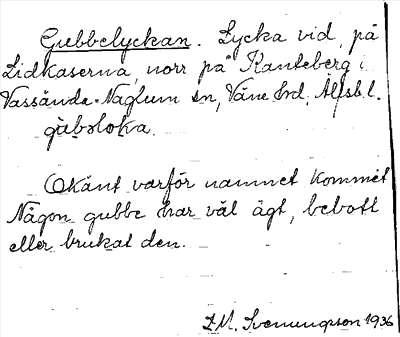 Gubbelyckan. Lycka vid, på
Lidkaserna, norr på Kanteberg i
Vassända-Naglum sn, Väne hd, Älfsb. l.
gùbəlo̊ka.
Okänt varför namnet kommit
Någon gubbe har väl ägt, bebott
eller brukat den.
Z.M. Svenungsson 1936